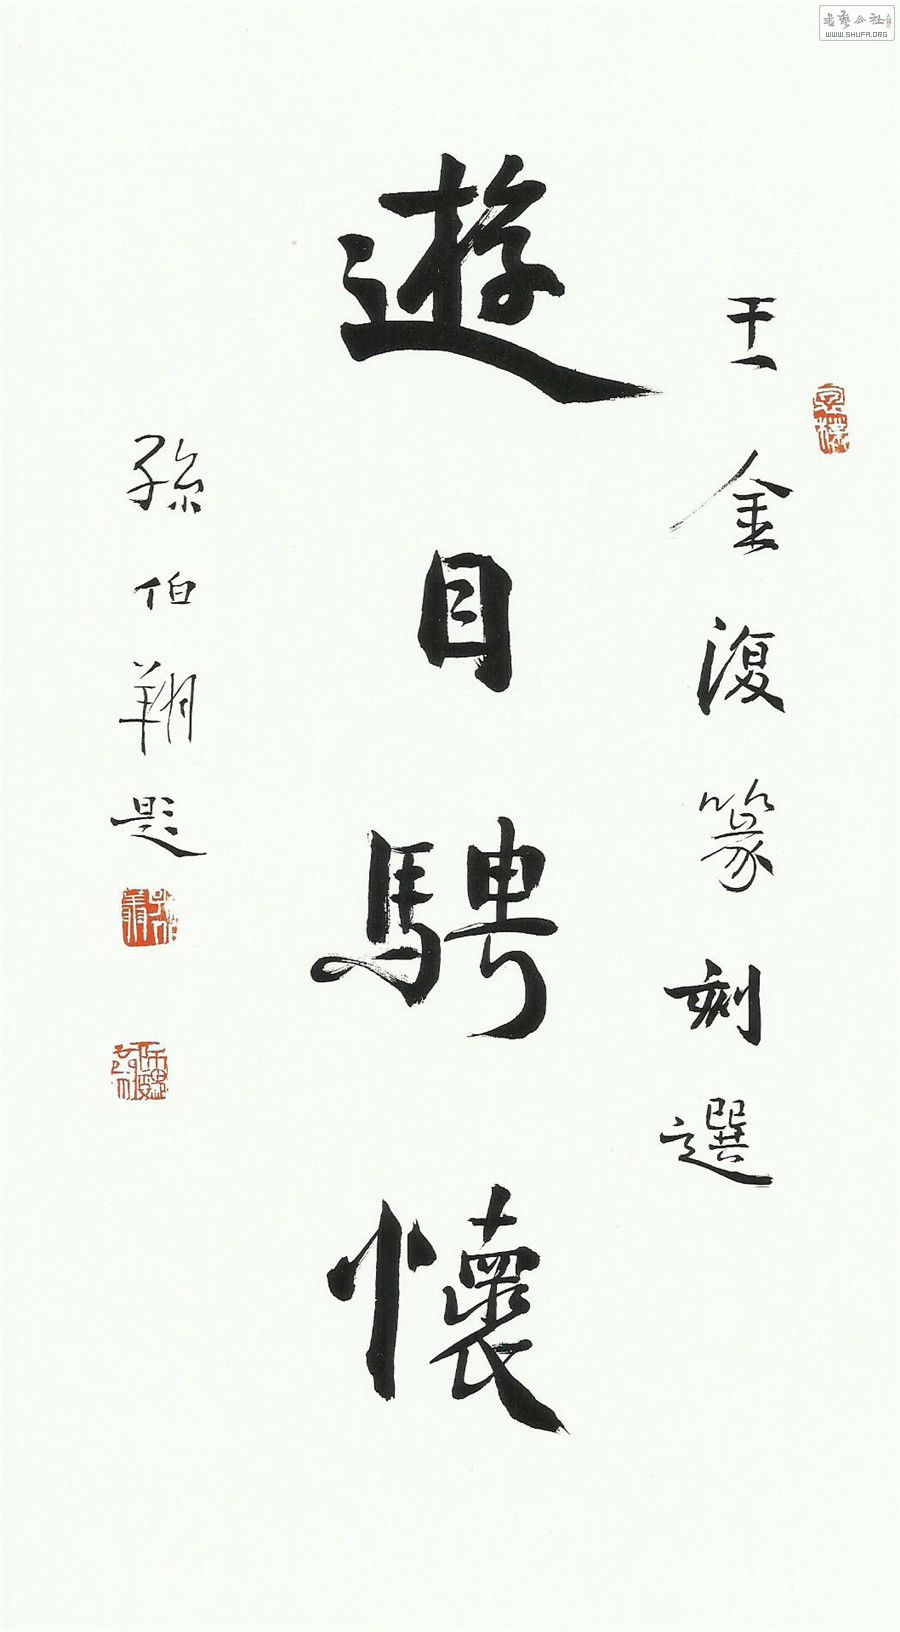 王金復篆刻選
遊目騁懷
孫伯翔題
書藝公社
WWW.SHUFA.ORG